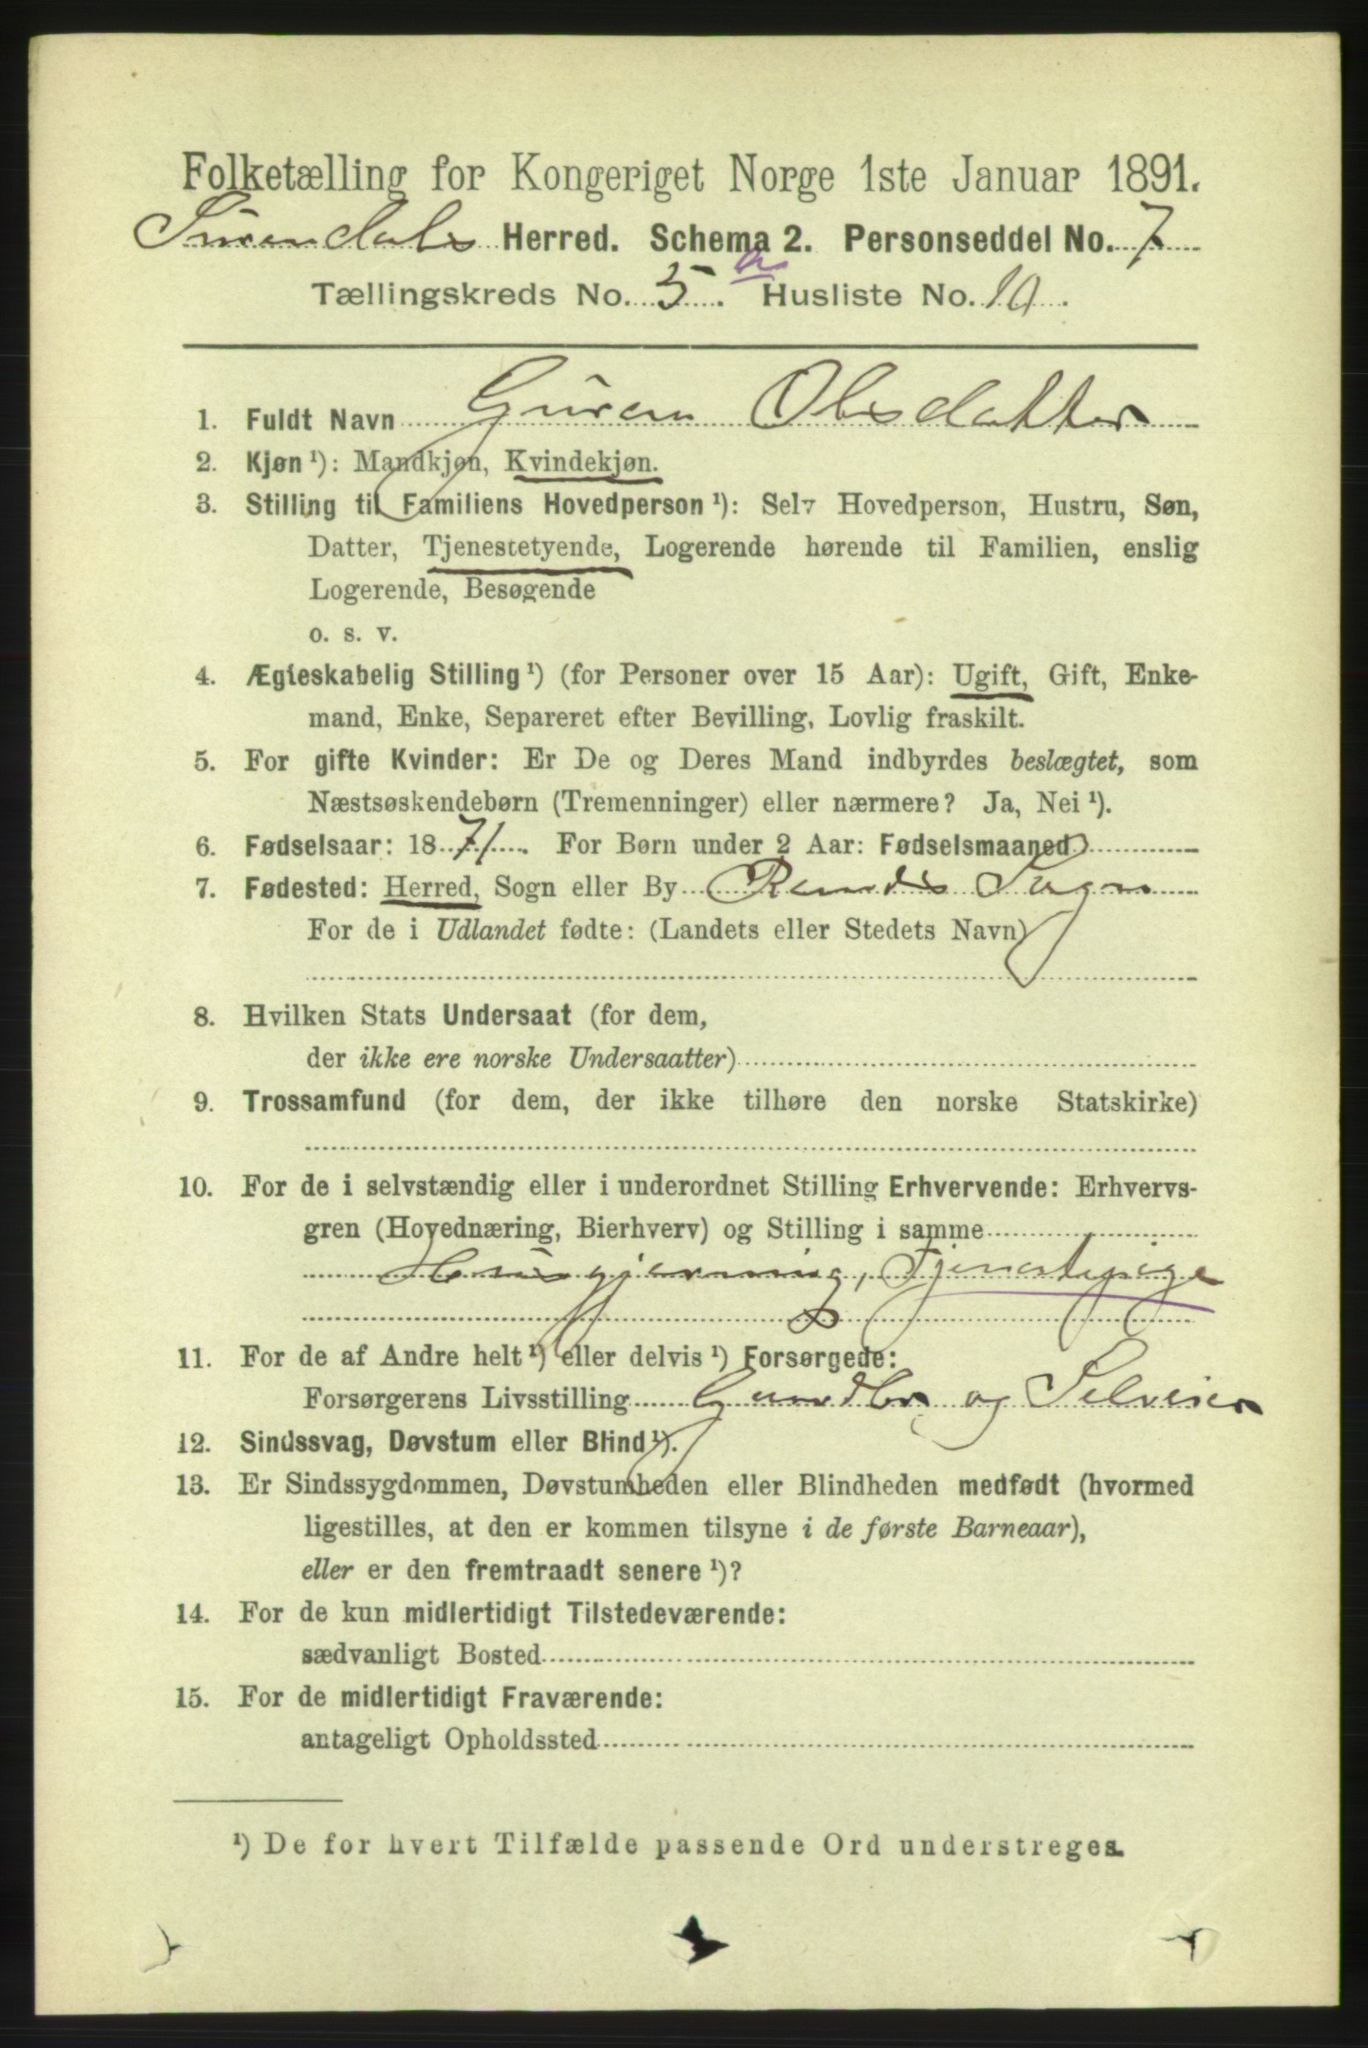 Folketælling for Kongeriget Norge 1ste Januar 1891.
Surendals Herred. Schema 2. Personseddel No. 7
Tællingskreds No. 5.a Husliste No. 10.
1. Fuldt Navn Guren Olsdatter
2. Kjøn ¹): Mandkjøn, Kvindekjøn.
3. Stilling til Familiens Hovedperson ¹): Selv Hovedperson, Hustru, Søn,
Datter, Tjenestetyende, Logerende hørende til Familien, enslig
Logerende, Besøgende
o. s. v.
4. Ægteskabelig Stilling ¹) (for Personer over 15 Aar): Ugift, Gift, Enke-
mand, Enke, Separeret efter Bevilling, Lovlig fraskilt.
5. For gifte Kvinder: Er De og Deres Mand indbyrdes beslægtet, som
Næstsøskendebørn (Tremenninger) eller nærmere? Ja, Nei ¹).
6. Fødselsaar: 1871. For Børn under 2 Aar: Fødselsmaaned
7. Fødested: Herred, Sogn eller By Rindes Sogn
For de i Udlandet fødte: (Landets eller Stedets Navn)
8. Hvilken Stats Undersaat (for dem,
der ikke ere norske Undersaatter)
9. Trossamfund (for dem, der ikke tilhøre den norske Statskirke)
10. For de i selvstændig eller i underordnet Stilling Erhvervende: Erhvervs-
gren (Hovednæring, Bierhverv) og Stilling i samme
Husgjerning, Tjenestepige
11. For de af Andre helt ¹) eller delvis ¹) Forsørgede:
Forsørgerens Livsstilling Gaardbr. og Selveier
12. Sindssvag, Døvstum eller Blind ¹).
13. Er Sindssygdommen, Døvstumheden eller Blindheden medfødt (hvormed
ligestilles, at den er kommen tilsyne i de første Barneaar),
eller er den fremtraadt senere ¹)?
14. For de kun midlertidigt Tilstedeværende:
sædvanligt Bosted
15. For de midlertidigt Fraværende:
antageligt Opholdssted
¹) De for hvert Tilfælde passende Ord understreges.